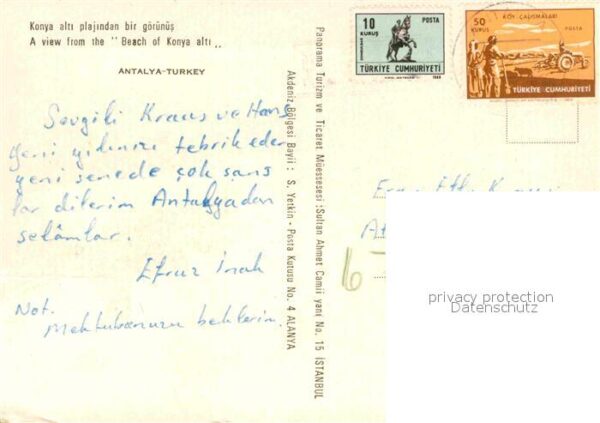 Konya altı plajından bir görünüş
A view from the '' Beach of Konya altı ,,
ANTALYA-TURKEY
Sevgili Kraus ve Hans
yeni yılınızı tebrik eder
yeni senede çok şans
lar dilerim Antalyadan
selâmlar.
Not.
beklerim.
Panorama Turizm ve Ticaret Müessesesi : Sultan Ahmet Camii yanı No. 15 İSTANBUL
Akdeniz Bölgesi Bayii : S. Yetkin - Posta Kutusu No. 4 ALANYA
10
KURUŞ
POSTA
TÜRKİYE CUMHURİYETİ
KÖY ÇALIŞMALARI
50
KURUŞ
POSTA
TÜRKİYE CUMHURİYETİ
6
privacy protection
Datenschutz